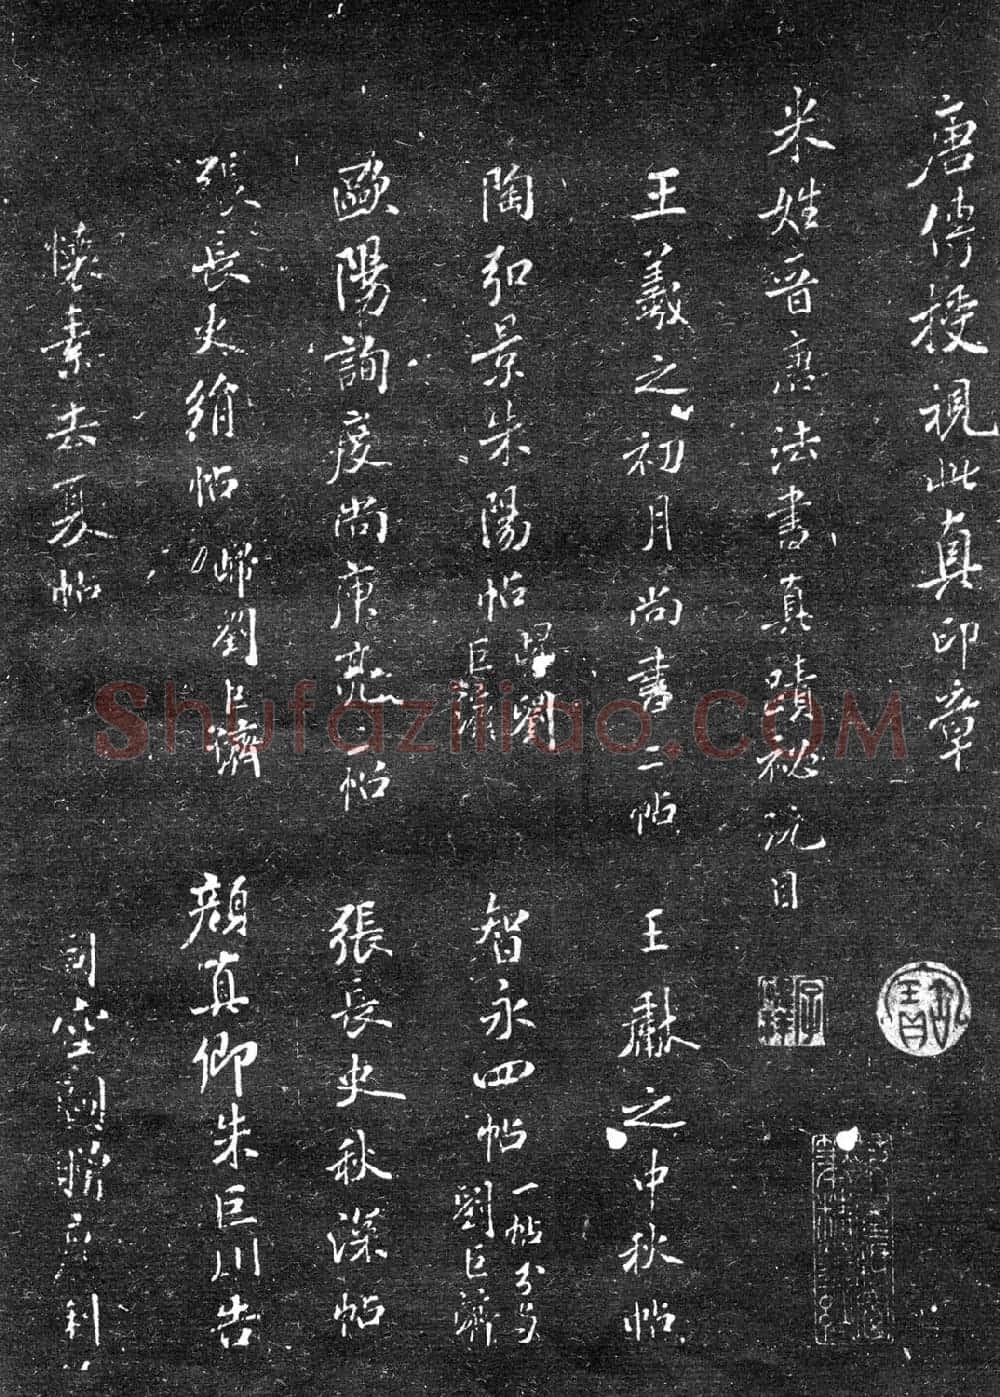 唐傳授視此真印章
米姓晉唐法書真蹟秘玩目
王羲之初月尚書二帖
王獻之中秋帖
陶弘景朱陽帖
劉巨濟
智永四帖
一帖分與
劉巨濟
歐陽詢度尚庾亮二帖
張長史秋深帖
張長史絹帖
歸劉巨濟
顏真卿朱巨川告
懷素去夏帖
司空圖贈
Shufaziliao.COM